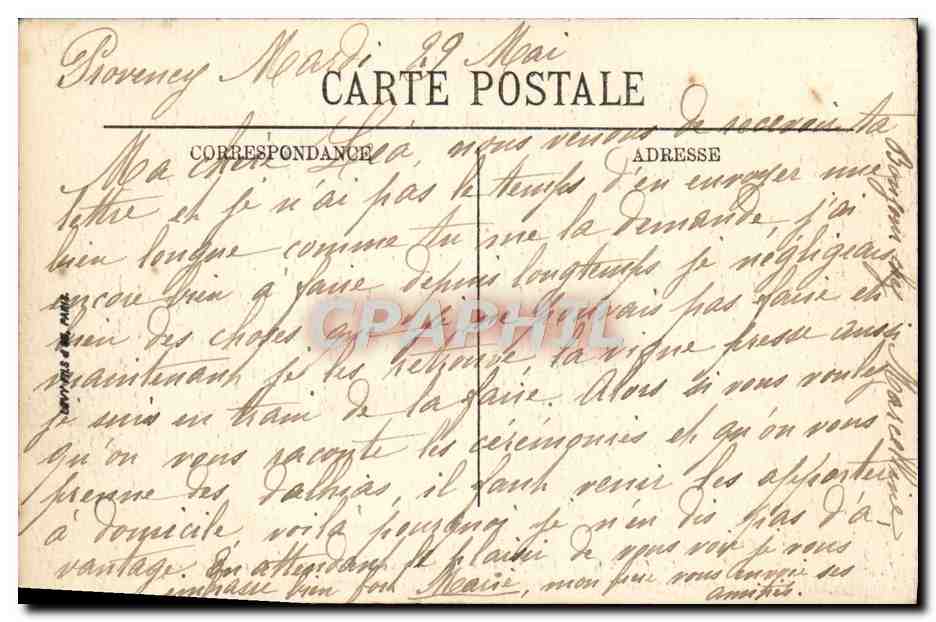 Provency Mardi 29 Mai
CARTE POSTALE
CORRESPONDANCE
ADRESSE
Ma chère Léa, nous venons de recevoir ta
lettre et je n'ai pas le temps d'en envoyer une
bien longue comme tu me la demande, j'ai
encore bien à faire depuis longtemps je négligeais
bien des choses que je ne pouvais pas faire et
maintenant je les retrouve la vigne presse aussi
je suis en train de la faire. Alors si vous voulez
qu'on vous raconte les cérémonies et qu'on vous
prenne des dalhias, il faut venir les apporter
à domicile, voilà pourquoi je n'en dis pas d'a-
vantage. En attendant le plaisir de vous voir je vous
embrasse bien fort Marie, mon père vous envoie ses
amitiés.
Bonjour de Marcelline
LEVY FILS & Cie, PARIS
CPAPHIL